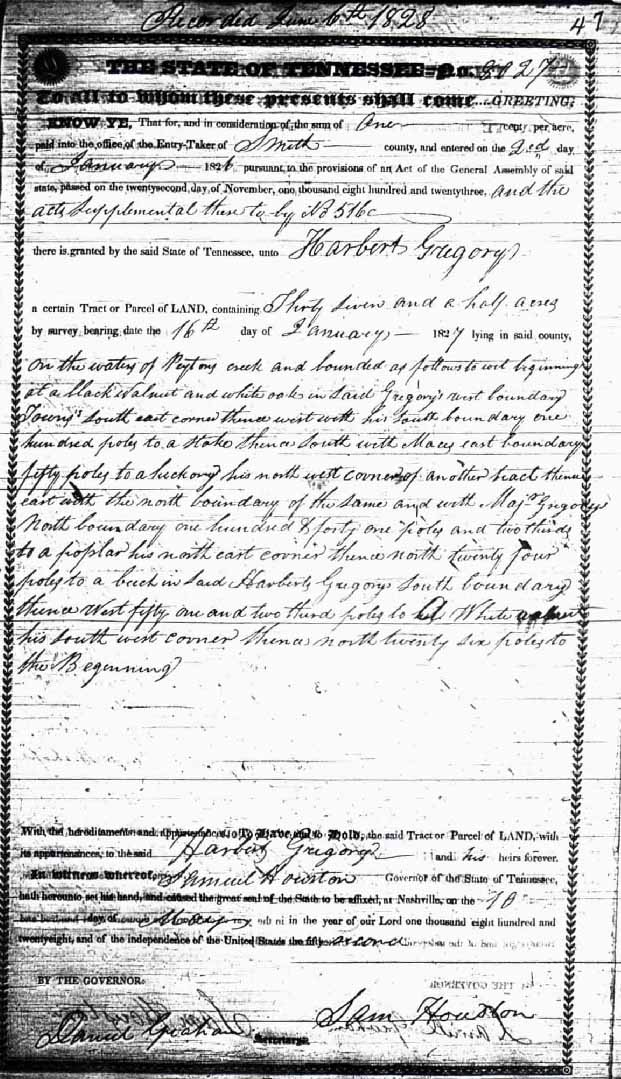 Recorded June 6th 1828
47
THE STATE OF TENNESSEE No. 8927
To all to whom these presents shall come...GREETING:
KNOW YE, That for, and in consideration of the sum of one cent per acre,
paid into the office of the Entry-Taker of Smith county, and entered on the 2nd day
of January 1826 pursuant to the provisions of an Act of the General Assembly of said
state, passed on the twentysecond day of November, one thousand eight hundred and twentythree, and the
acts Supplemental there to by No 516
there is granted by the said State of Tennessee, unto Harbert Gregory
a certain Tract or Parcel of LAND, containing Thirty seven and a half acres
by survey bearing date the 16th day of January 1827 lying in said county,
on the waters of Peytons creek and bounded as follows to wit beginning
at a black Walnut and white oak in said Gregory's west boundary
south east corner thence west with his south boundary one
hundred poles to a stake thence south with Maces east boundary
fifty poles to a hickory his north west corner of another tract thence
east with the north boundary of the same and with Majr Gregorys
North boundary one hundred & forty one poles and two thirds
to a poplar his north east corner thence north twenty four
poles to a beech in said Harberts Gregorys south boundary
thence West fifty one and two third poles to White
his south west corner thence north twenty six poles to
the Beginning
With the hereditaments and appurtenances. To Have and to Hold, the said Tract or Parcel of LAND, with
its appurtenances, to the said Harbert Gregory and his heirs forever.
In witness whereof, Samuel Houston Governor of the State of Tennessee,
hath hereunto set his hand, and caused the great seal of the State to be affixed, at Nashville, on the 10
day of May in the year of our Lord one thousand eight hundred and
twentyeight, and of the independence of the United States the fifty second
BY THE GOVERNOR:
Sam Houston
Daniel Graham
Secretary.